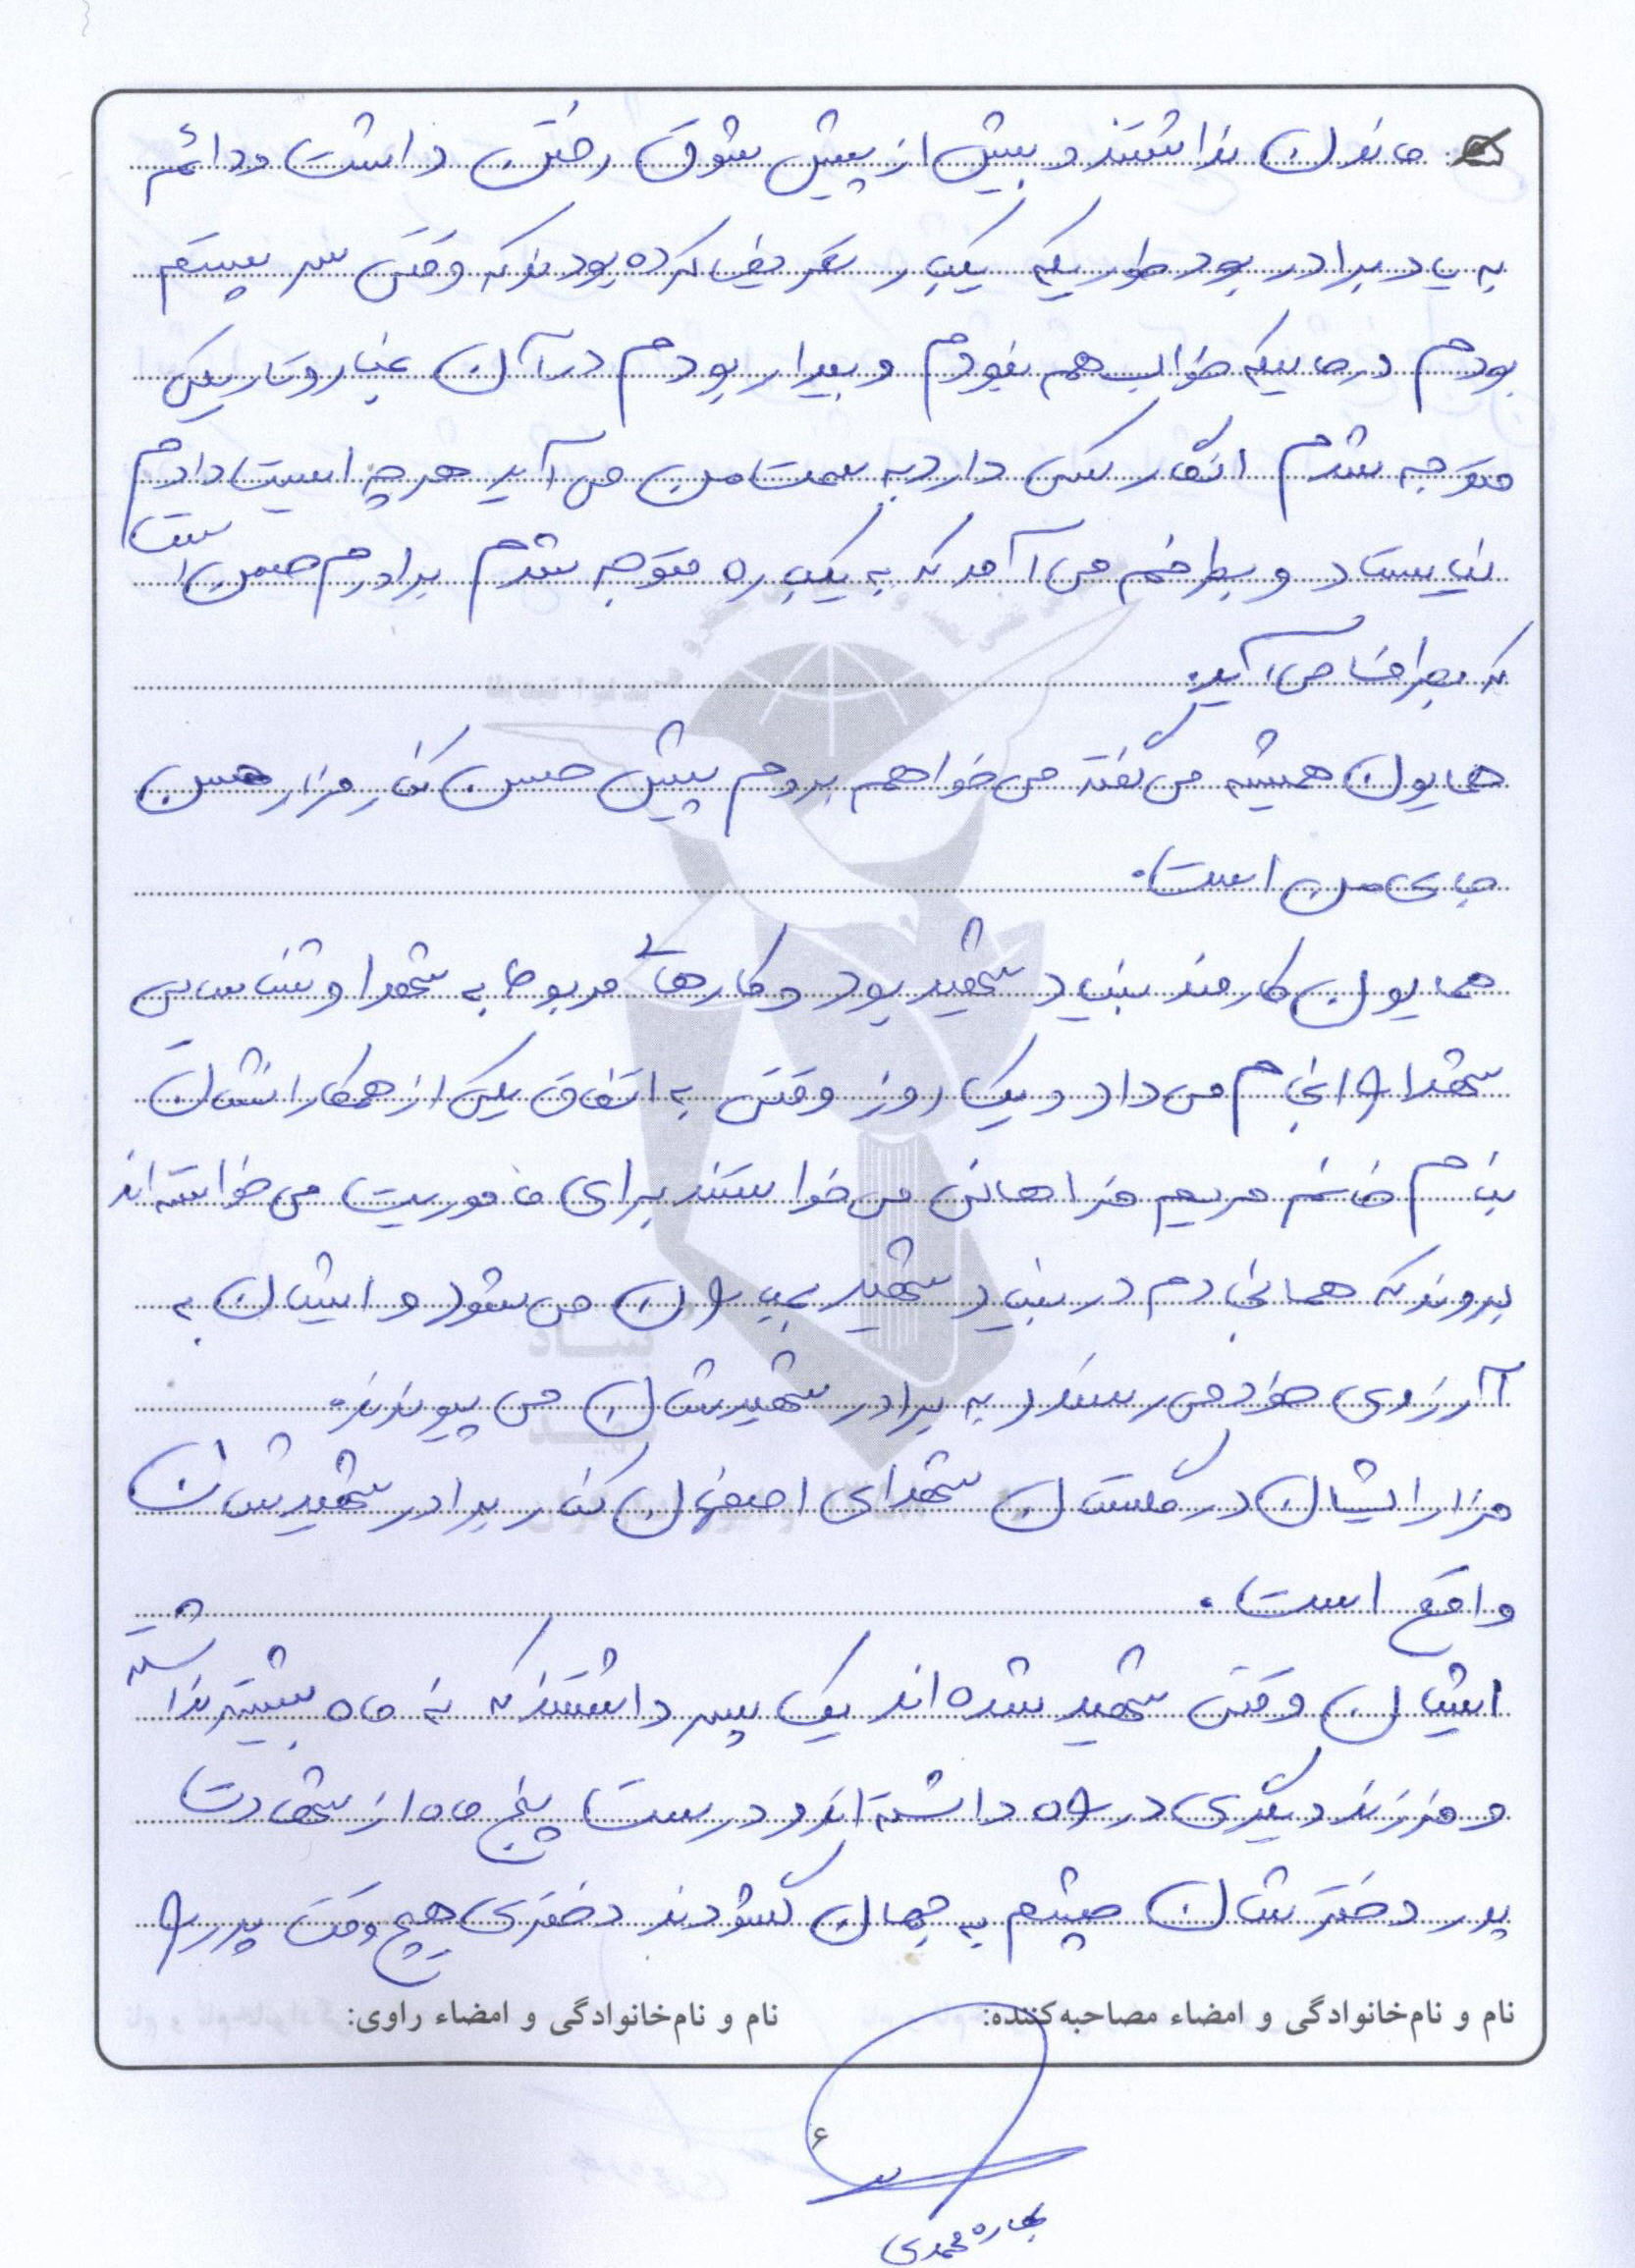 ماندن نداشتند و بیش از پیش شوق رفتن داشت و دائم
به یاد برادر بود طوریکه یکبار تعریف کرده بودند که وقتی سر پستم
بودم درحالیکه خواب هم نبودم و بیدار بودم در آن غبار و تاریکی
متوجه شدم انگار کسی دارد به سمت من می آید هر چه ایست دادم
نایستاد و بطرفم می آمد که به یکباره متوجه شدم برادرم حسن است
که بطرف ما می آید.
همایون همیشه می گفتند می خواهم بروم پیش حسن کنار مزار حسن
جای من است.
همایون کارمند بنیاد شهید بود و کارهای مربوط به شهدا و شناسایی
شهدا را انجام می داد و یک روز وقتی به اتفاق یکی از همکارانشان
بنام خانم مریم فراهانی می خواستند برای ماموریت می خواسته اند
بروند که همانجا دم در بنیاد شهید بمباران می شود و ایشان به
آرزوی خود می رسند و به برادر شهیدشان می پیوندند.
مزار ایشان در گلستان شهدای اصفهان کنار برادر شهیدشان
واقع است.
ایشان وقتی شهید شده اند یک پسر داشتند که نه ماه بیشتر نداشته
و فرزند دیگری در راه داشته اند و درست پنج ماه از شهادت
پدر دخترشان چشم به جهان گشودند دختری هیچ وقت پدر را
نام و نام‌خانوادگی و امضاء مصاحبه‌کننده: نام و نام‌خانوادگی و امضاء راوی:
۶
بهاره محمدی
بنیاد
شهید